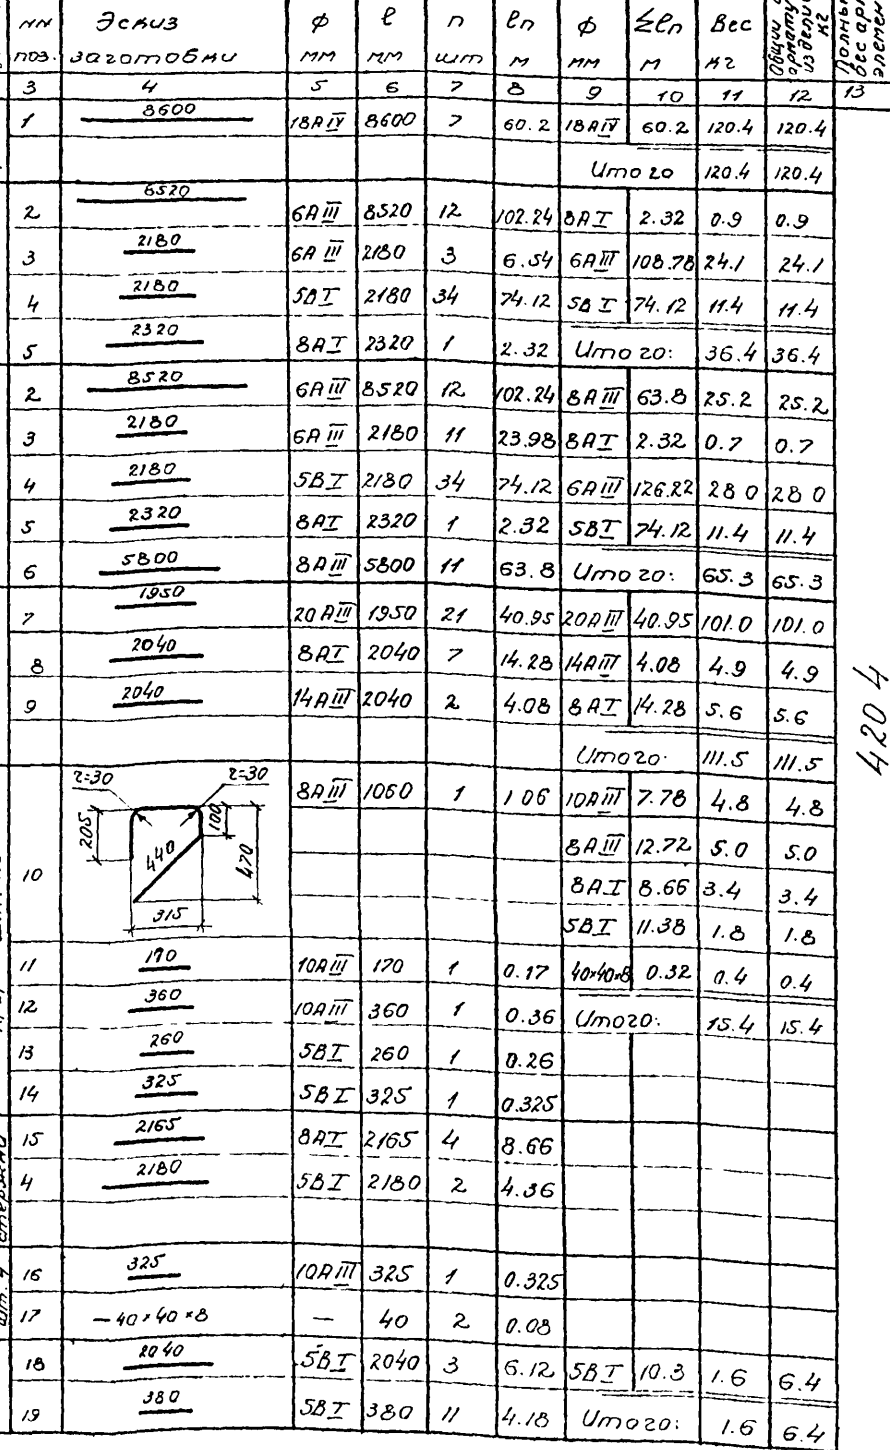 NN Эскиз ф l n ln ф Σln Вес Общий арматур изделий кг Полный вес арм элемен
поз. заготовки мм мм шт м мм м кг
3 4 5 6 7 8 9 10 11 12 13
1 8600 18АIV 8600 7 60.2 18АIV 60.2 120.4 120.4
Итого 120.4 120.4
2 6520 6АIII 8520 12 102.24 8АI 2.32 0.9 0.9
3 2180 6АIII 2180 3 6.54 6АIII 108.78 24.1 24.1
4 2180 5ВI 2180 34 74.12 5ВI 74.12 11.4 11.4
5 2320 8АI 2320 1 2.32 Итого: 36.4 36.4
2 8520 6АIII 8520 12 102.24 8АIII 63.8 25.2 25.2
3 2180 6АIII 2180 11 23.98 8АI 2.32 0.7 0.7
4 2180 5ВI 2180 34 74.12 6АIII 126.22 28 0 28 0
5 2320 8АI 2320 1 2.32 5ВI 74.12 11.4 11.4
6 5800 8АIII 5800 11 63.8 Итого: 65.3 65.3
7 1950 20АIII 1950 21 40.95 20АIII 40.95 101.0 101.0
8 2040 8АI 2040 7 14.28 14АIII 4.08 4.9 4.9
9 2040 14АIII 2040 2 4.08 8АI 14.28 5.6 5.6
Итого. 111.5 111.5
420 4
10 r=30 r=30 205 440 100 470 315 8АIII 1060 1 1 06 10АIII 7.78 4.8 4.8
8АIII 12.72 5.0 5.0
8АI 8.66 3.4 3.4
5ВI 11.38 1.8 1.8
11 170 10АIII 170 1 0.17 40×40×8 0.32 0.4 0.4
12 360 10АIII 360 1 0.36 Итого: 15.4 15.4
13 260 5ВI 260 1 0.26
14 325 5ВI 325 1 0.325
15 2165 8АI 2165 4 8.66
4 2180 5ВI 2180 2 4.36
16 325 10АIII 325 1 0.325
17 –40×40×8 — 40 2 0.08
18 2040 5ВI 2040 3 6.12 5ВI 10.3 1.6 6.4
19 380 5ВI 380 11 4.18 Итого: 1.6 6.4